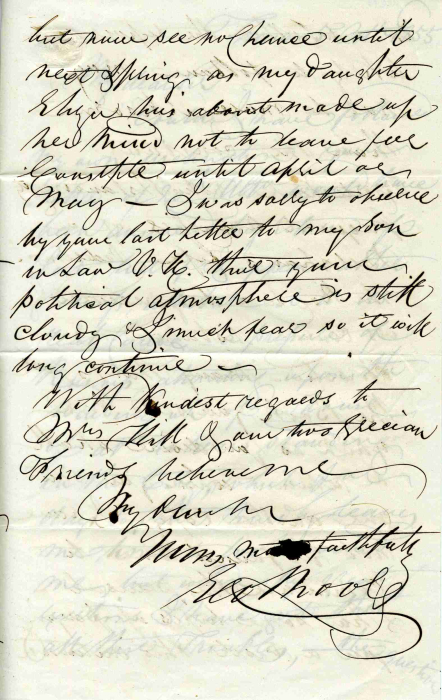 but now see no Chance until
next Spring as my daughter
Eliza has about made up
her mind not to leave for
Constple until April or
May — I was sorry to observe
by your last letter to my Son
in Law V. H. that your
political atmosphere is still
cloudy & I much fear so it will
long continue —
With kindest regards to
Mrs Hill & our two Grecian
Friends believe me
My dear Sir
Yours most faithfully
Geo Moore